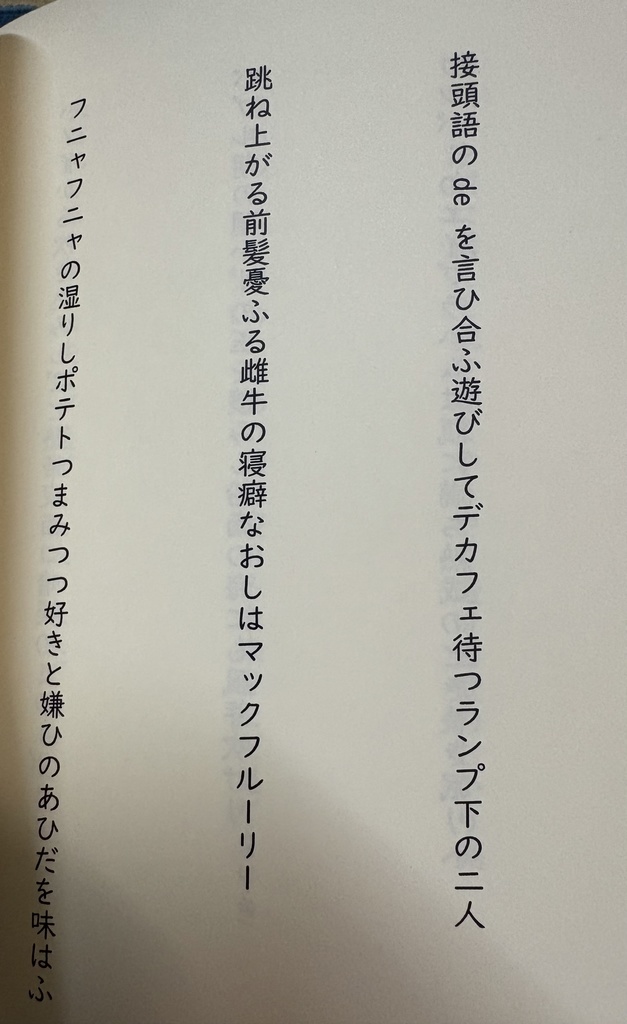 接頭語のdeを言ひ合ふ遊びしてデカフェ待つランプ下の二人
跳ね上がる前髪憂ふる雌牛の寝癖なおしはマックフルーリー
フニャフニャの湿りしポテトつまみつつ好きと嫌ひのあひだを味はふ